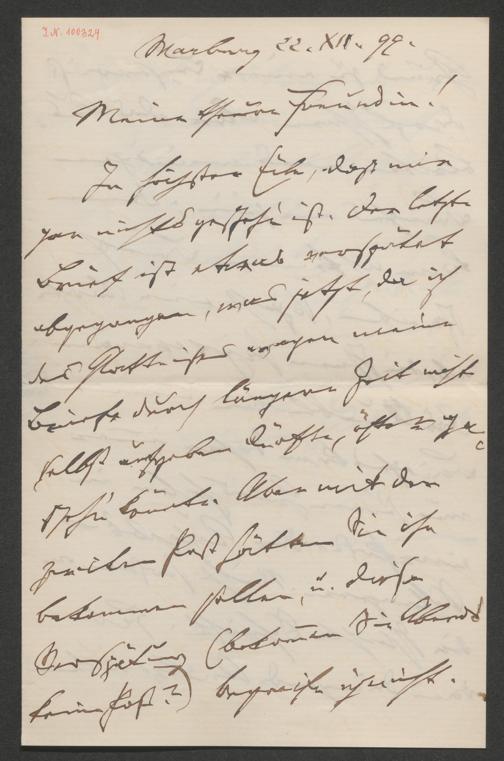 I.N. 100324
Marburg 22. XII. 99.
Meine theure Freundin!
In höchster Eile, daß mir
gar nichts geschehn ist. Der letzte
Brief ist etwas verspätet
abgegangen, was jetzt, da ich
des Glatteises wegen meine
Briefe durch längere Zeit nicht
selbst aufgeben dürfte, öfters ge-
schehn könnte. Aber mit der
zweiten Post hätten Sie ihn
bekommen sollen, u. diese
Verspätung (bekommen Sie Abends
keine Post?) begreife ich nicht.